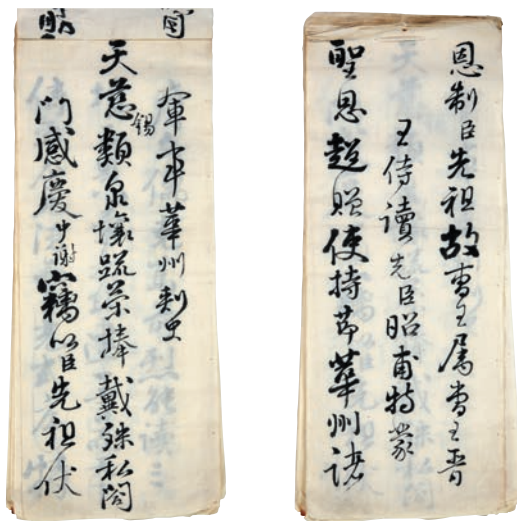 恩制臣先祖故曹王屬曹王晉
王侍讀先臣昭甫特蒙
聖恩超贈使持節華州諸
軍事華州刺史
天慈錫類泉壤疏榮捧戴殊私闔
門感慶中謝竊以臣先祖伏